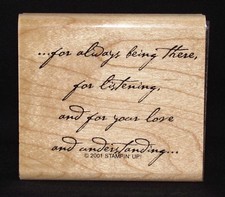 ...for always being there,
for listening,
and for your love
and understanding...
© 2001 STAMPIN' UP!